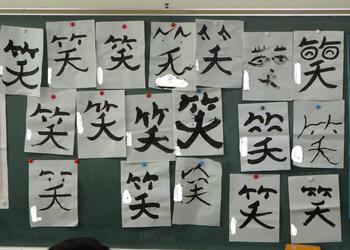 笑 笑 笑 笑 笑 笑 笑
笑 笑 笑 笑 笑 笑
笑 笑 笑 笑 笑